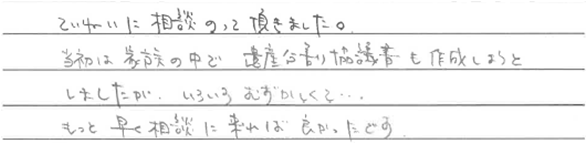 ていねいに相談のって頂きました。
当初は家族の中で 遺産分割協議書も作成しようと
しましたが、いろいろむずかしくて…
もっと早く相談に来れば良かったです